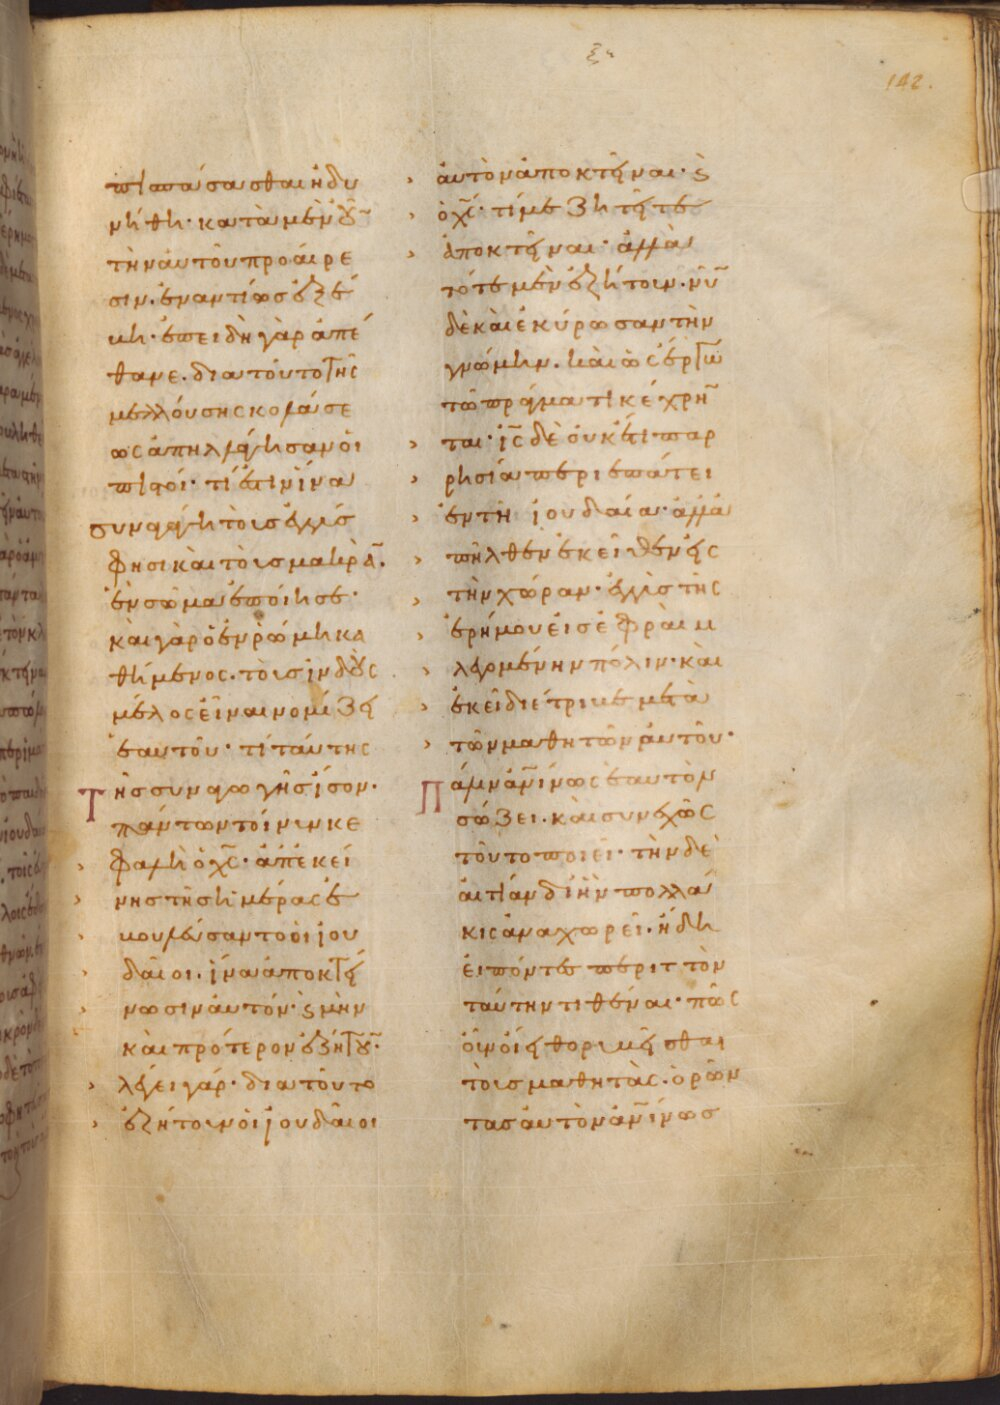 πισπάσασθαι ἠδυ
νήθη· κατὰ μὲν οὖν
τὴν αὐτοῦ προαίρε
σιν. ἐναντίως ἐξέ
βη· ἐπειδὴ γὰρ ἀπέ
θανε. διὰ τοῦτο τῆς
μελλούσης κολάσε
ως ἀπηλλάγησαν οἱ
πιστοί· τί ἐστιν ἵνα
συναγάγη τοὺς ἐγγύς
φησι καὶ τοὺς μακρὰν.
ἓν σῶμα ἐποίησε·
καὶ γὰρ ὁ ἐν ῥώμη κα
θήμενος. τοὺς ἰνδοὺς
μέλος εἶναι νομίζει
ἑαυτοῦ· τί ταύτης
τῆς συναγωγῆς ἴσον·
πάντων τοίνυν κε
φαλὴ ὁ χς· ἀπ' ἐκεί
νης τῆς ἡμέρας ἐ
βουλεύσαντο οἱ ἰου
δαῖοι. ἵνα ἀποκτεί
νωσιν αὐτόν· ϗ μὴν
καὶ πρότερον ἐζήτουν·
λέγει γάρ· διὰ τοῦτο
ἐζήτουν οἱ ἰουδαῖοι
αὐτὸν ἀποκτεῖναι· ϗ
ὁ χς· τί με ζητεῖτε
ἀποκτεῖναι· ἀλλὰ
τότε μὲν ἐζήτουν. νῦν
δὲ καὶ ἐκύρωσαν τὴν
γνώμην. καὶ ὡς ἔργω
τῶ πράγματι κέχρην
ται· ις δὲ οὐκέτι παρ
ρησία περιεπάτει
ἐν τῆ ἰουδαία· ἀλλὰ
πῆλθεν ἐκεῖθεν εἰς
τὴν χώραν· ἐγγὺς τῆς
ἐρήμου εἰς ἐφραὶμ
λεγομένην πόλιν· καὶ
ἐκεῖ διέτριβε μετὰ
τῶν μαθητῶν αὐτοῦ·
πάλιν ἀνίνως ἑαυτὸν
σώζει. καὶ συνεχῶς
τοῦτο ποιεῖ· τὴν δὲ
αἰτίαν δι' ἣν πολλά
κις ἀναχωρεῖ. ἤδη
εἰπόντες περιττὸν
ταύτην τιθέναι· πῶς
οἴει θορυβεῖσθαι
τοὺς μαθητὰς. ὁρῶν
τας αὐτὸν ἀνίνως